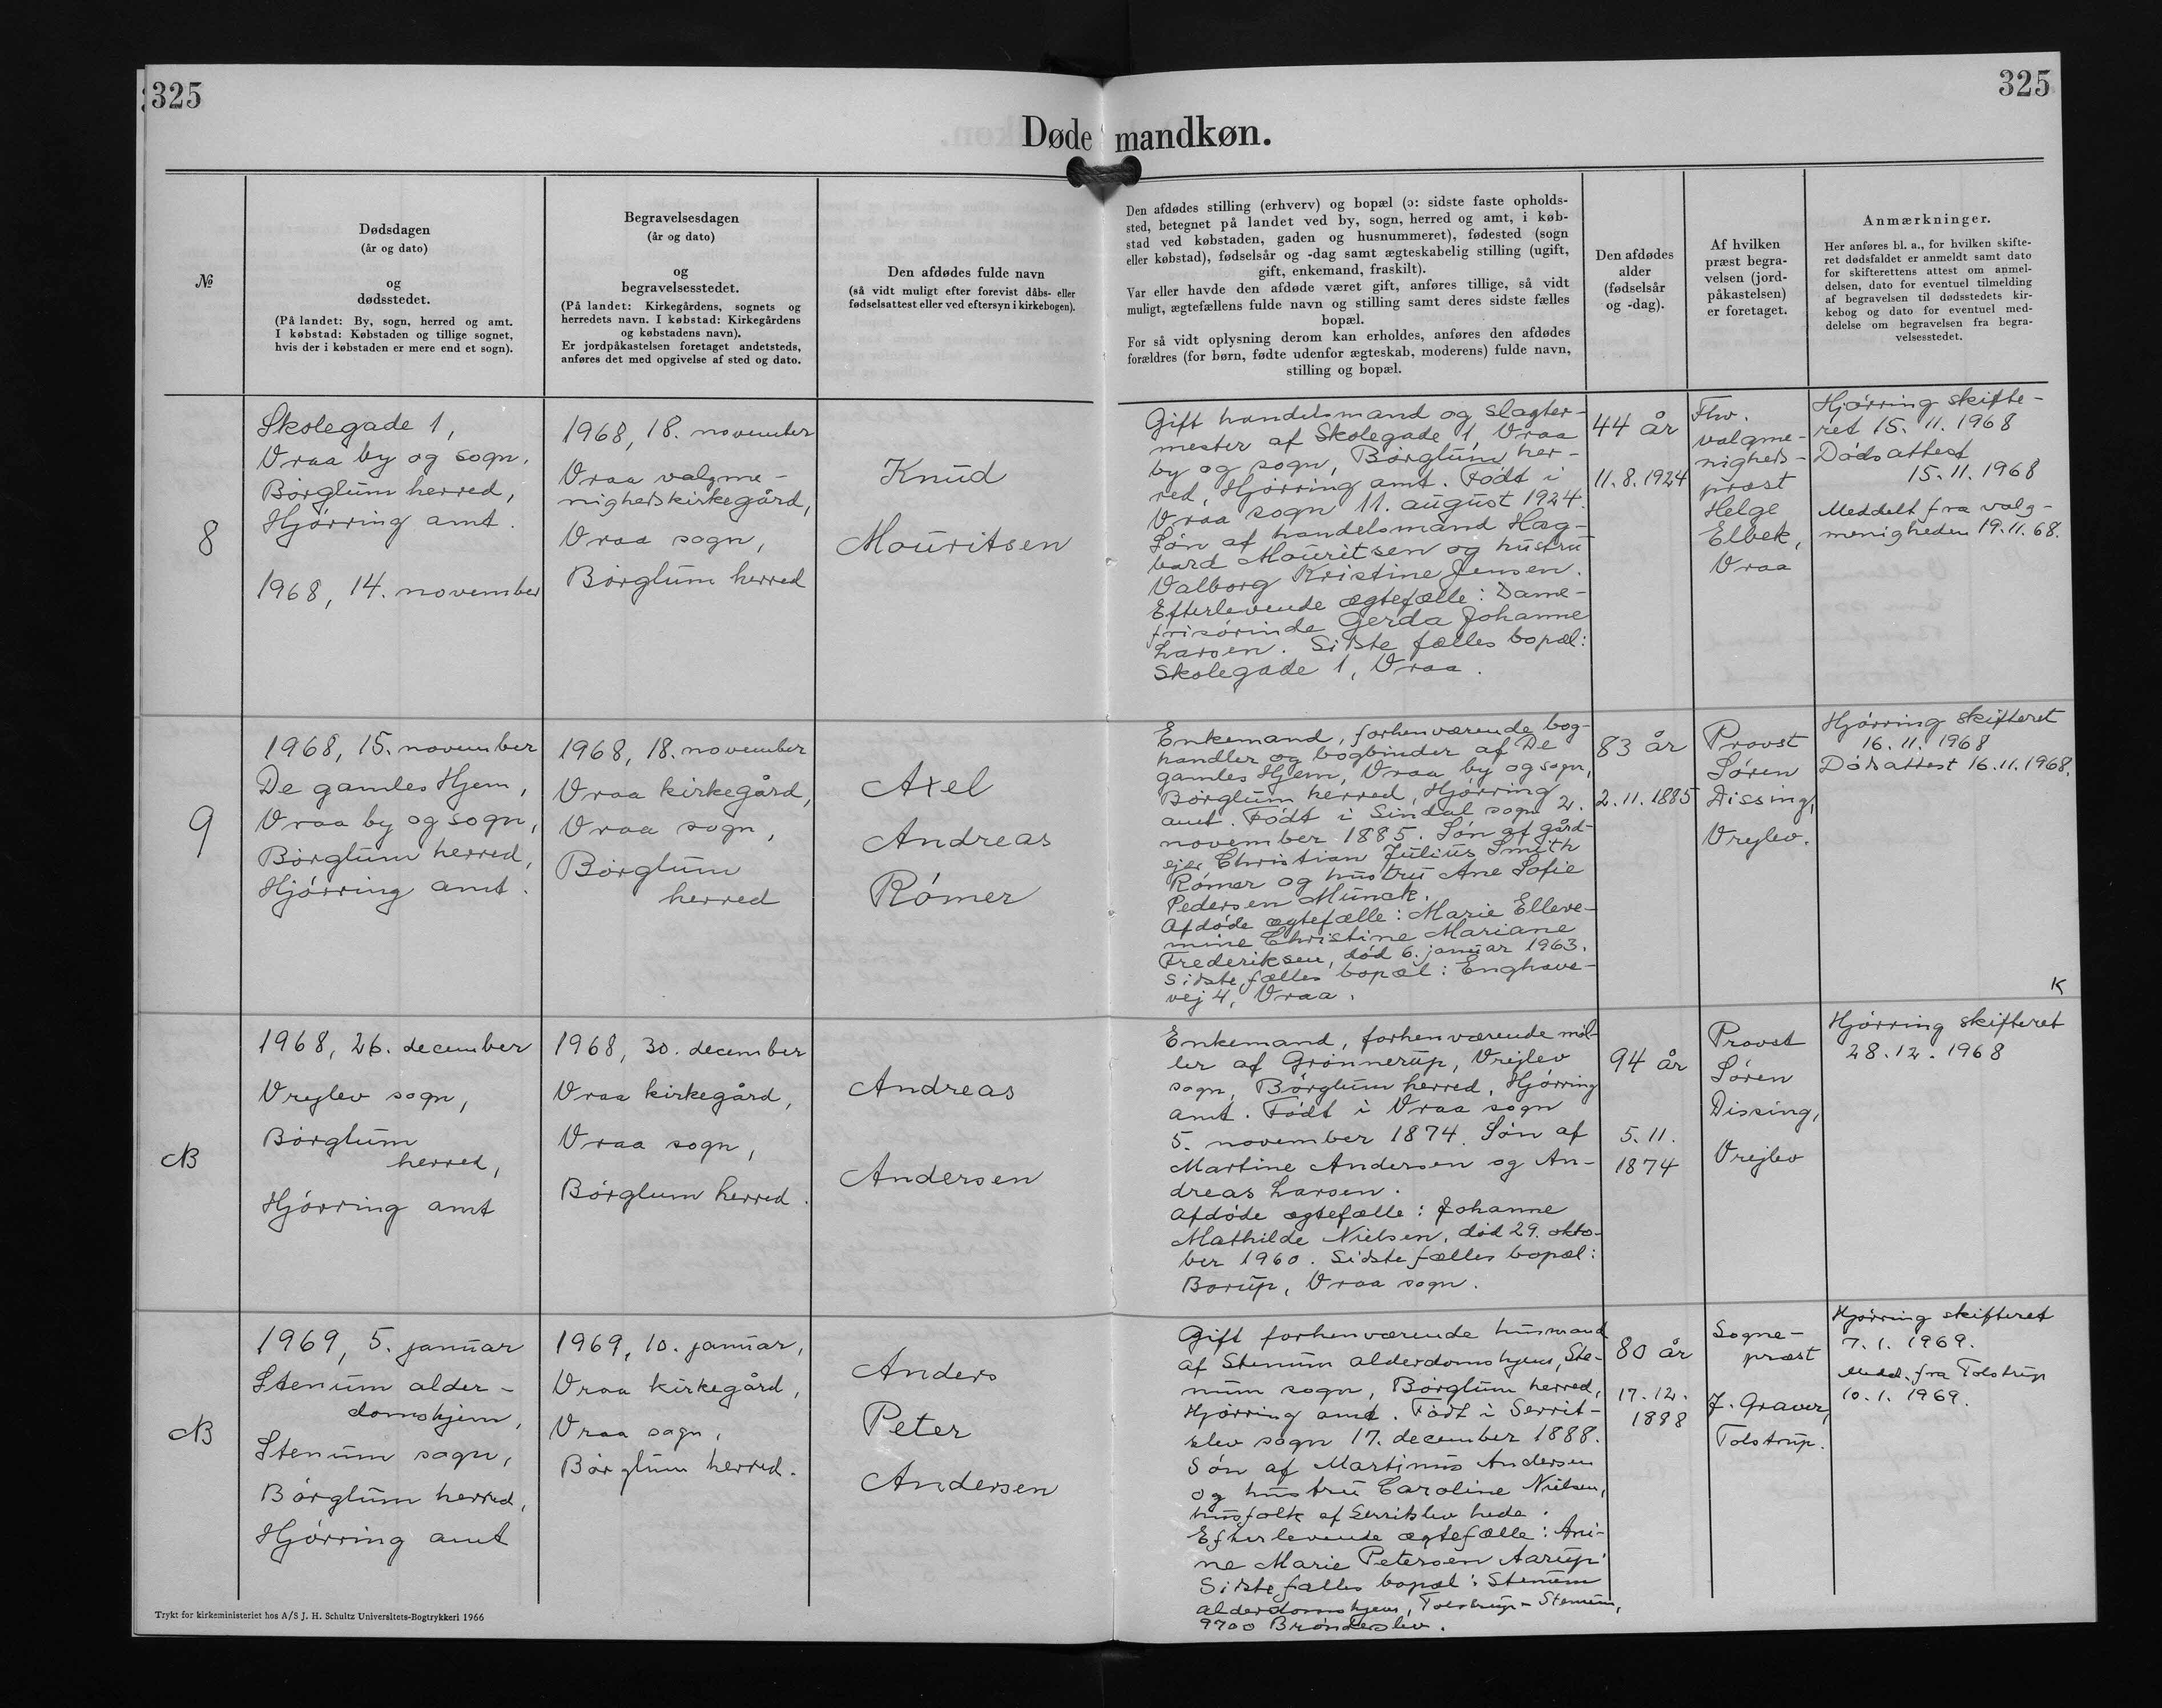 325
325
Døde mandkøn.
№
Dødsdagen
(år og dato)
og
dødsstedet.
(På landet: By, sogn, herred og amt.
I købstad: Købstaden og tillige sognet,
hvis der i købstaden er mere end et sogn).
Begravelsesdagen
(år og dato)
og
begravelsesstedet.
(På landet: Kirkegårdens, sognets og
herredets navn. I købstad: Kirkegårdens
og købstadens navn).
Er jordpåkastelsen foretaget andetsteds,
anføres det med opgivelse af sted og dato.
Den afdødes fulde navn
(så vidt muligt efter forevist dåbs- eller
fødselsattest eller ved eftersyn i kirkebogen).
Den afdødes stilling (erhverv) og bopæl (ɔ: sidste faste opholds-
sted, betegnet på landet ved by, sogn, herred og amt, i køb-
stad ved købstaden, gaden og husnummeret), fødested (sogn
eller købstad), fødselsår og -dag samt ægteskabelig stilling (ugift,
gift, enkemand, fraskilt).
Var eller havde den afdøde været gift, anføres tillige, så vidt
muligt, ægtefællens fulde navn og stilling samt deres sidste fælles
bopæl.
For så vidt oplysning derom kan erholdes, anføres den afdødes
forældres (for børn, fødte udenfor ægteskab, moderens) fulde navn,
stilling og bopæl.
Den afdødes
alder
(fødselsår
og -dag).
Af hvilken
præst begra-
velsen (jord-
påkastelsen)
er foretaget.
Anmærkninger.
Her anføres bl. a., for hvilken skifte-
ret dødsfaldet er anmeldt samt dato
for skifterettens attest om anmel-
delsen, dato for eventuel tilmelding
af begravelsen til dødsstedets kir-
kebog og dato for eventuel med-
delelse om begravelsen fra begra-
velsesstedet.
8
Skolegade 1,
Vraa by og sogn,
Børglum herred,
Hjørring amt.
1968, 14. november
1968, 18. november
Vraa valgme-
nighedskirkegård,
Vraa sogn,
Børglum herred
Knud
Mouritsen
Gift handelsmand og slagter-
mester af Skolegade 1, Vraa
by og sogn, Børglum her-
red, Hjørring amt. Født i
Vraa sogn 11. august 1924.
Søn af handelsmand Hag-
bard Mouritsen og hustru
Valborg Kristine Jensen.
Efterlevende ægtefælle: Dame-
frisørinde Gerda Johanne
Larsen. Sidste fælles bopæl:
Skolegade 1, Vraa.
44 år
11.8.1924
Fhv.
valgme-
nigheds-
præst
Helge
Elbek,
Vraa
Hjørring skifte-
ret 15.11.1968
Dødsattest
15.11.1968
Meddelt fra valg-
menigheden 19.11.68.
9
1968, 15. november
De gamles Hjem,
Vraa by og sogn,
Børglum herred,
Hjørring amt.
1968, 18. november
Vraa kirkegård,
Vraa sogn,
Børglum
herred
Axel
Andreas
Rømer
Enkemand, forhenværende bog-
handler og bogbinder af De
gamles Hjem, Vraa by og sogn,
Børglum herred, Hjørring
amt. Født i Sindal sogn 2.
november 1885. Søn af gård-
ejer Christian Julius Smith
Rømer og hustru Ane Sofie
Pedersen Munck.
Afdøde ægtefælle: Marie Elleve-
mine Christine Mariane
Frederiksen, død 6. januar 1963.
Sidste fælles bopæl: Enghave-
vej 4, Vraa.
83 år
2.11.1885
Provst
Søren
Dissing,
Vrejlev.
Hjørring skifteret
16.11.1968
Dødsattest 16.11.1968.
K
NB
1968, 26. december
Vrejlev sogn,
Børglum
herred,
Hjørring amt
1968, 30. december
Vraa kirkegård,
Vraa sogn,
Børglum herred.
Andreas
Andersen
Enkemand, forhenværende møl-
ler af Grønnerup, Vrejlev
sogn, Børglum herred, Hjørring
amt. Født i Vraa sogn
5. november 1874. Søn af
Martine Andersen og An-
dreas Larsen.
Afdøde ægtefælle: Johanne
Mathilde Nielsen, død 29. okto-
ber 1960. Sidste fælles bopæl:
Borup, Vraa sogn.
94 år
5.11.
1874
Provst
Søren
Dissing,
Vrejlev
Hjørring skifteret
28.12.1968
NB
1969, 5. januar
Stenum alder-
domshjem,
Stenum sogn,
Børglum herred,
Hjørring amt
1969, 10. januar,
Vraa kirkegård,
Vraa sogn,
Børglum herred.
Anders
Peter
Andersen
Gift forhenværende husmand
af Stenum alderdomshjem, Ste-
num sogn, Børglum herred,
Hjørring amt. Født i Serrit-
slev sogn 17. december 1888.
Søn af Martinus Andersen
og hustru Caroline Nielsen,
husfolk af Serritslev hede.
Efterlevende ægtefælle: Ani-
ne Marie Petersen Aarup.
Sidste fælles bopæl: Stenum
alderdomshjem, Tolstrup-Stenum,
9700 Brønderslev.
80 år
17.12.
1888
Sogne-
præst
J. Graver,
Tolstrup.
Hjørring skifteret
7.1.1969.
Medd. fra Tolstrup
10.1.1969.
Trykt for kirkeministeriet hos A/S J. H. Schultz Universitets-Bogtrykkeri 1966